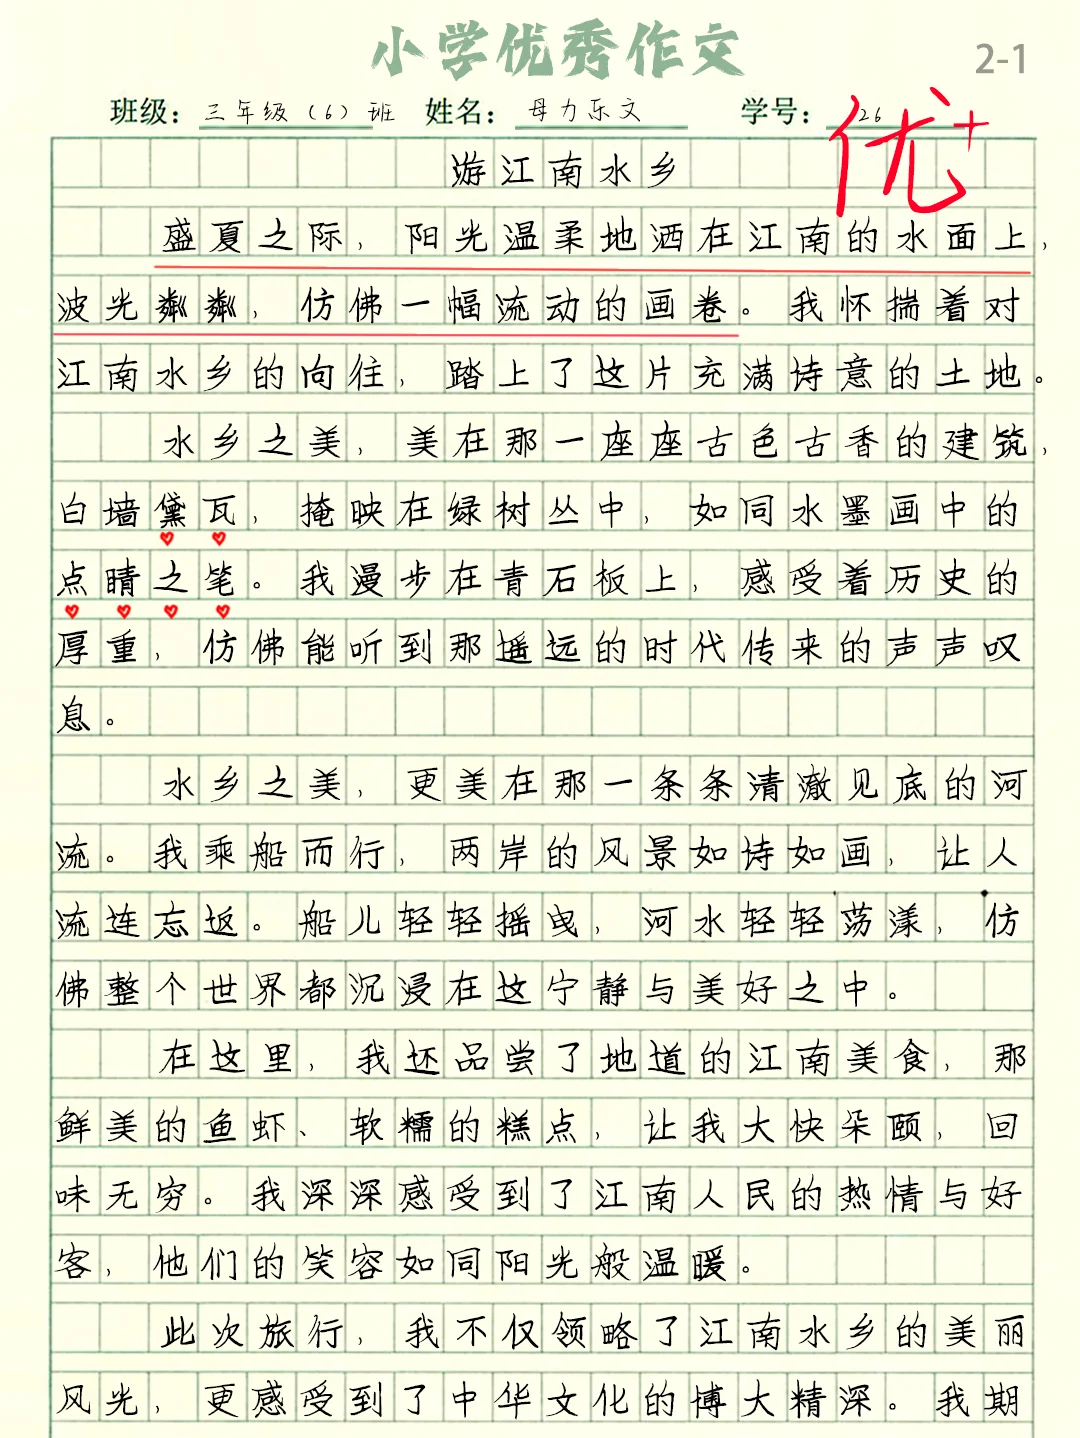 小学优秀作文
2-1
班级：三年级（6）班 姓名：母力乐文 学号：26
优+
游江南水乡
盛夏之际，阳光温柔地洒在江南的水面上，
波光粼粼，仿佛一幅流动的画卷。我怀揣着对
江南水乡的向往，踏上了这片充满诗意的土地。
水乡之美，美在那一座座古色古香的建筑，
白墙黛瓦，掩映在绿树丛中，如同水墨画中的
点睛之笔。我漫步在青石板上，感受着历史的
厚重，仿佛能听到那遥远的时代传来的声声叹
息。
水乡之美，更美在那一条条清澈见底的河
流。我乘船而行，两岸的风景如诗如画，让人
流连忘返。船儿轻轻摇曳，河水轻轻荡漾，仿
佛整个世界都沉浸在这宁静与美好之中。
在这里，我还品尝了地道的江南美食，那
鲜美的鱼虾、软糯的糕点，让我大快朵颐，回
味无穷。我深深感受到了江南人民的热情与好
客，他们的笑容如同阳光般温暖。
此次旅行，我不仅领略了江南水乡的美丽
风光，更感受到了中华文化的博大精深。我期